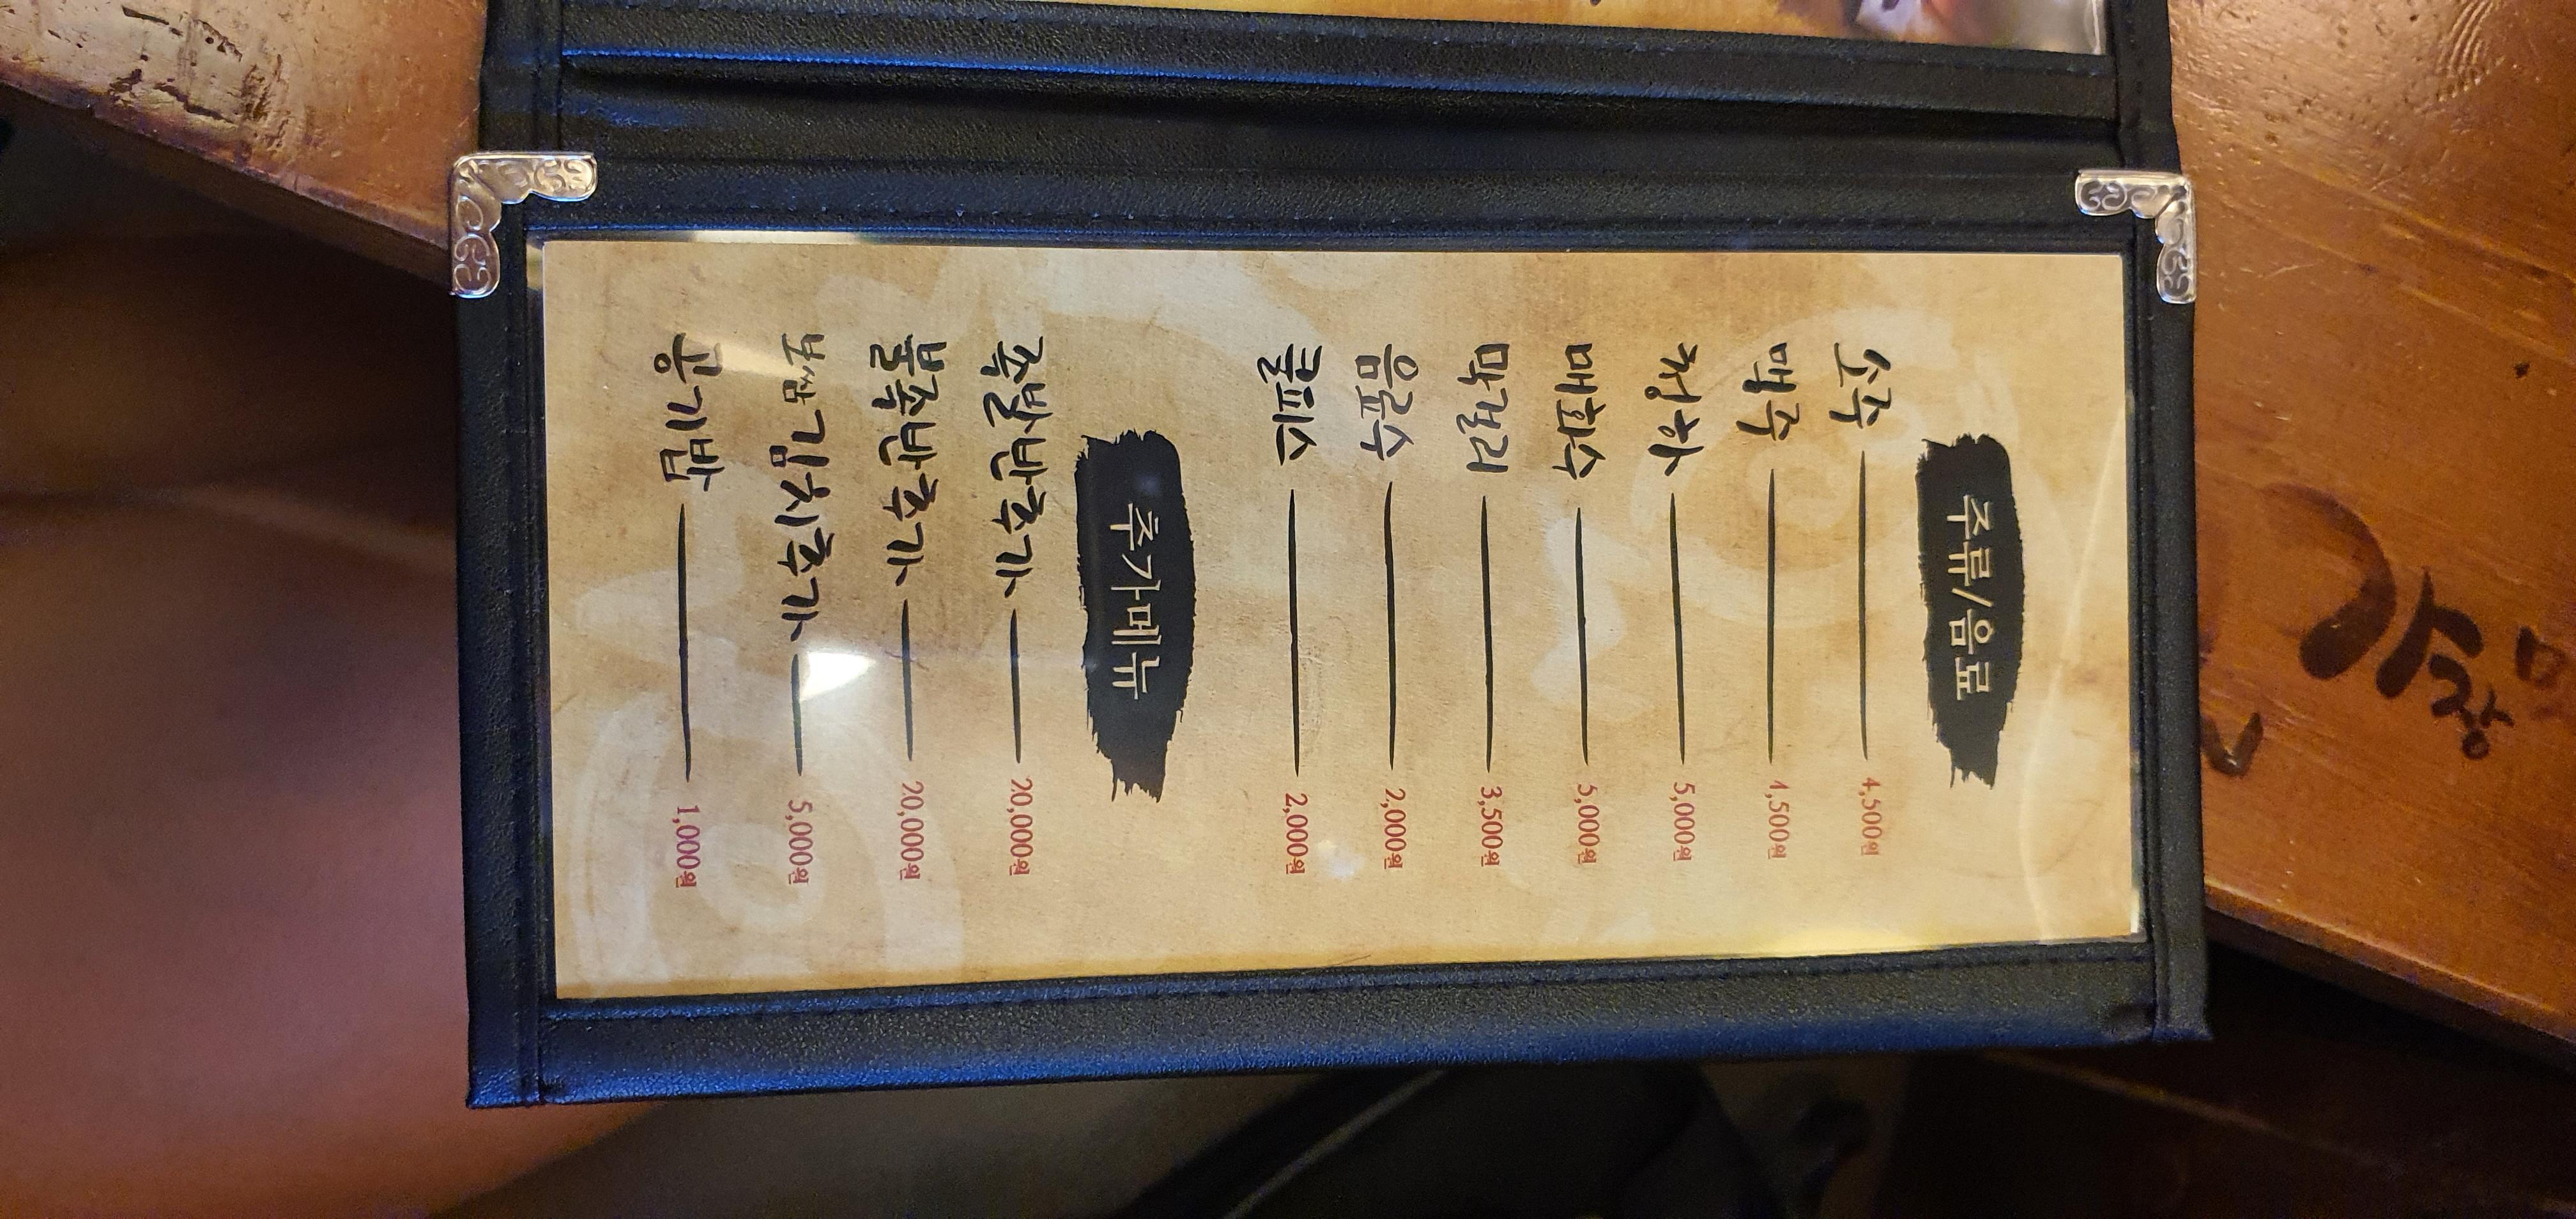 주류/음료
소주 4,500원
맥주 4,500원
청하 5,000원
매화수 5,000원
막걸리 3,500원
음료수 2,000원
쿨피스 2,000원
추가메뉴
족발반추가 20,000원
불족반추가 20,000원
보쌈김치추가 5,000원
공기밥 1,000원